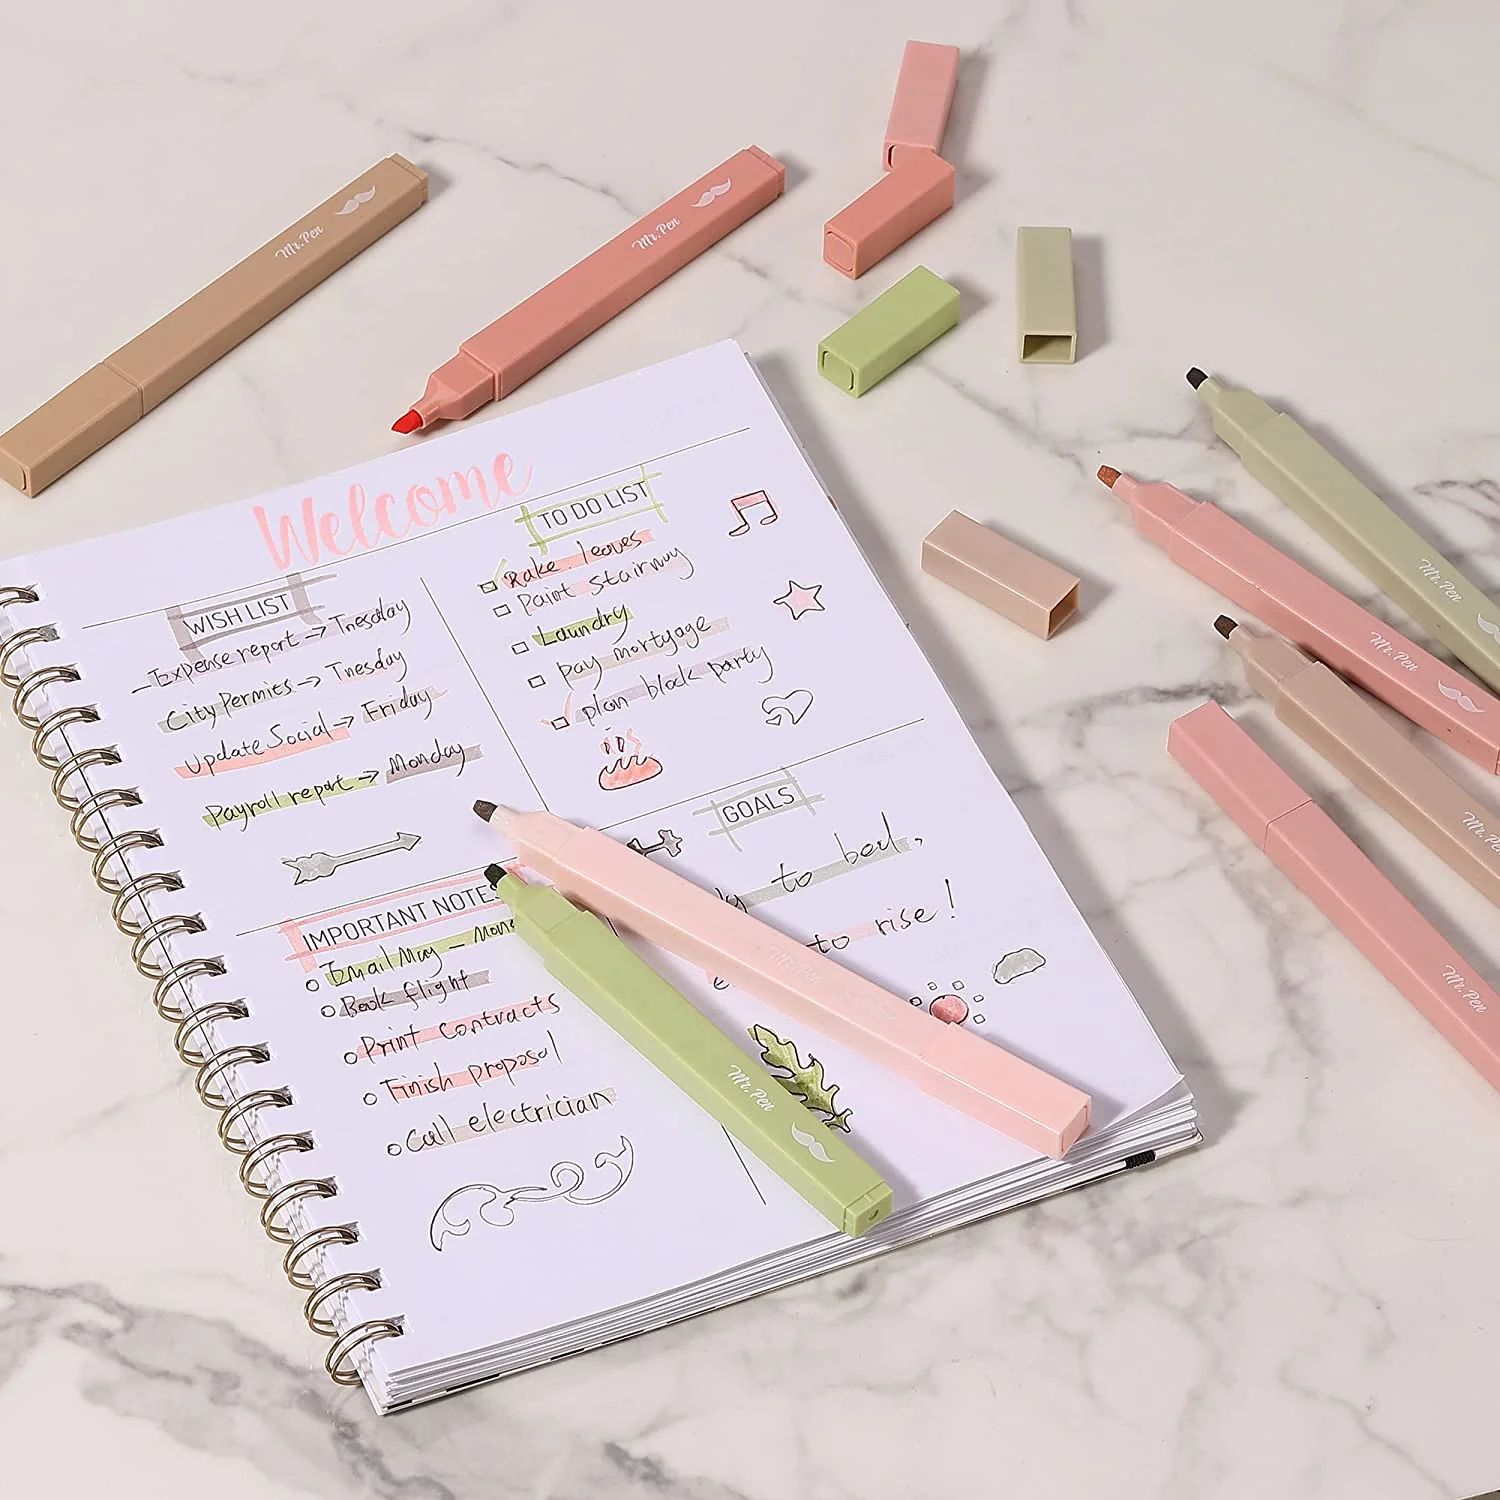 Mr. Pen
Mr. Pen
Welcome
WISH LIST
Expense report → Tnesday
City Permies → Tnesday
Update Social → Friday
Payroll report → Monday
TO DO LIST
Rake leaves
paint stairway
Laundry
pay mortgage
plan block party
IMPORTANT NOTES
Email May - Mon
Book flight
Print contracts
Finish proposal
Call electrician
GOALS
to bed,
to rise!
Mr. Pen
Mr. Pen
Mr. Pen
Mr. Pen
Mr. Pen
Mr. Pen